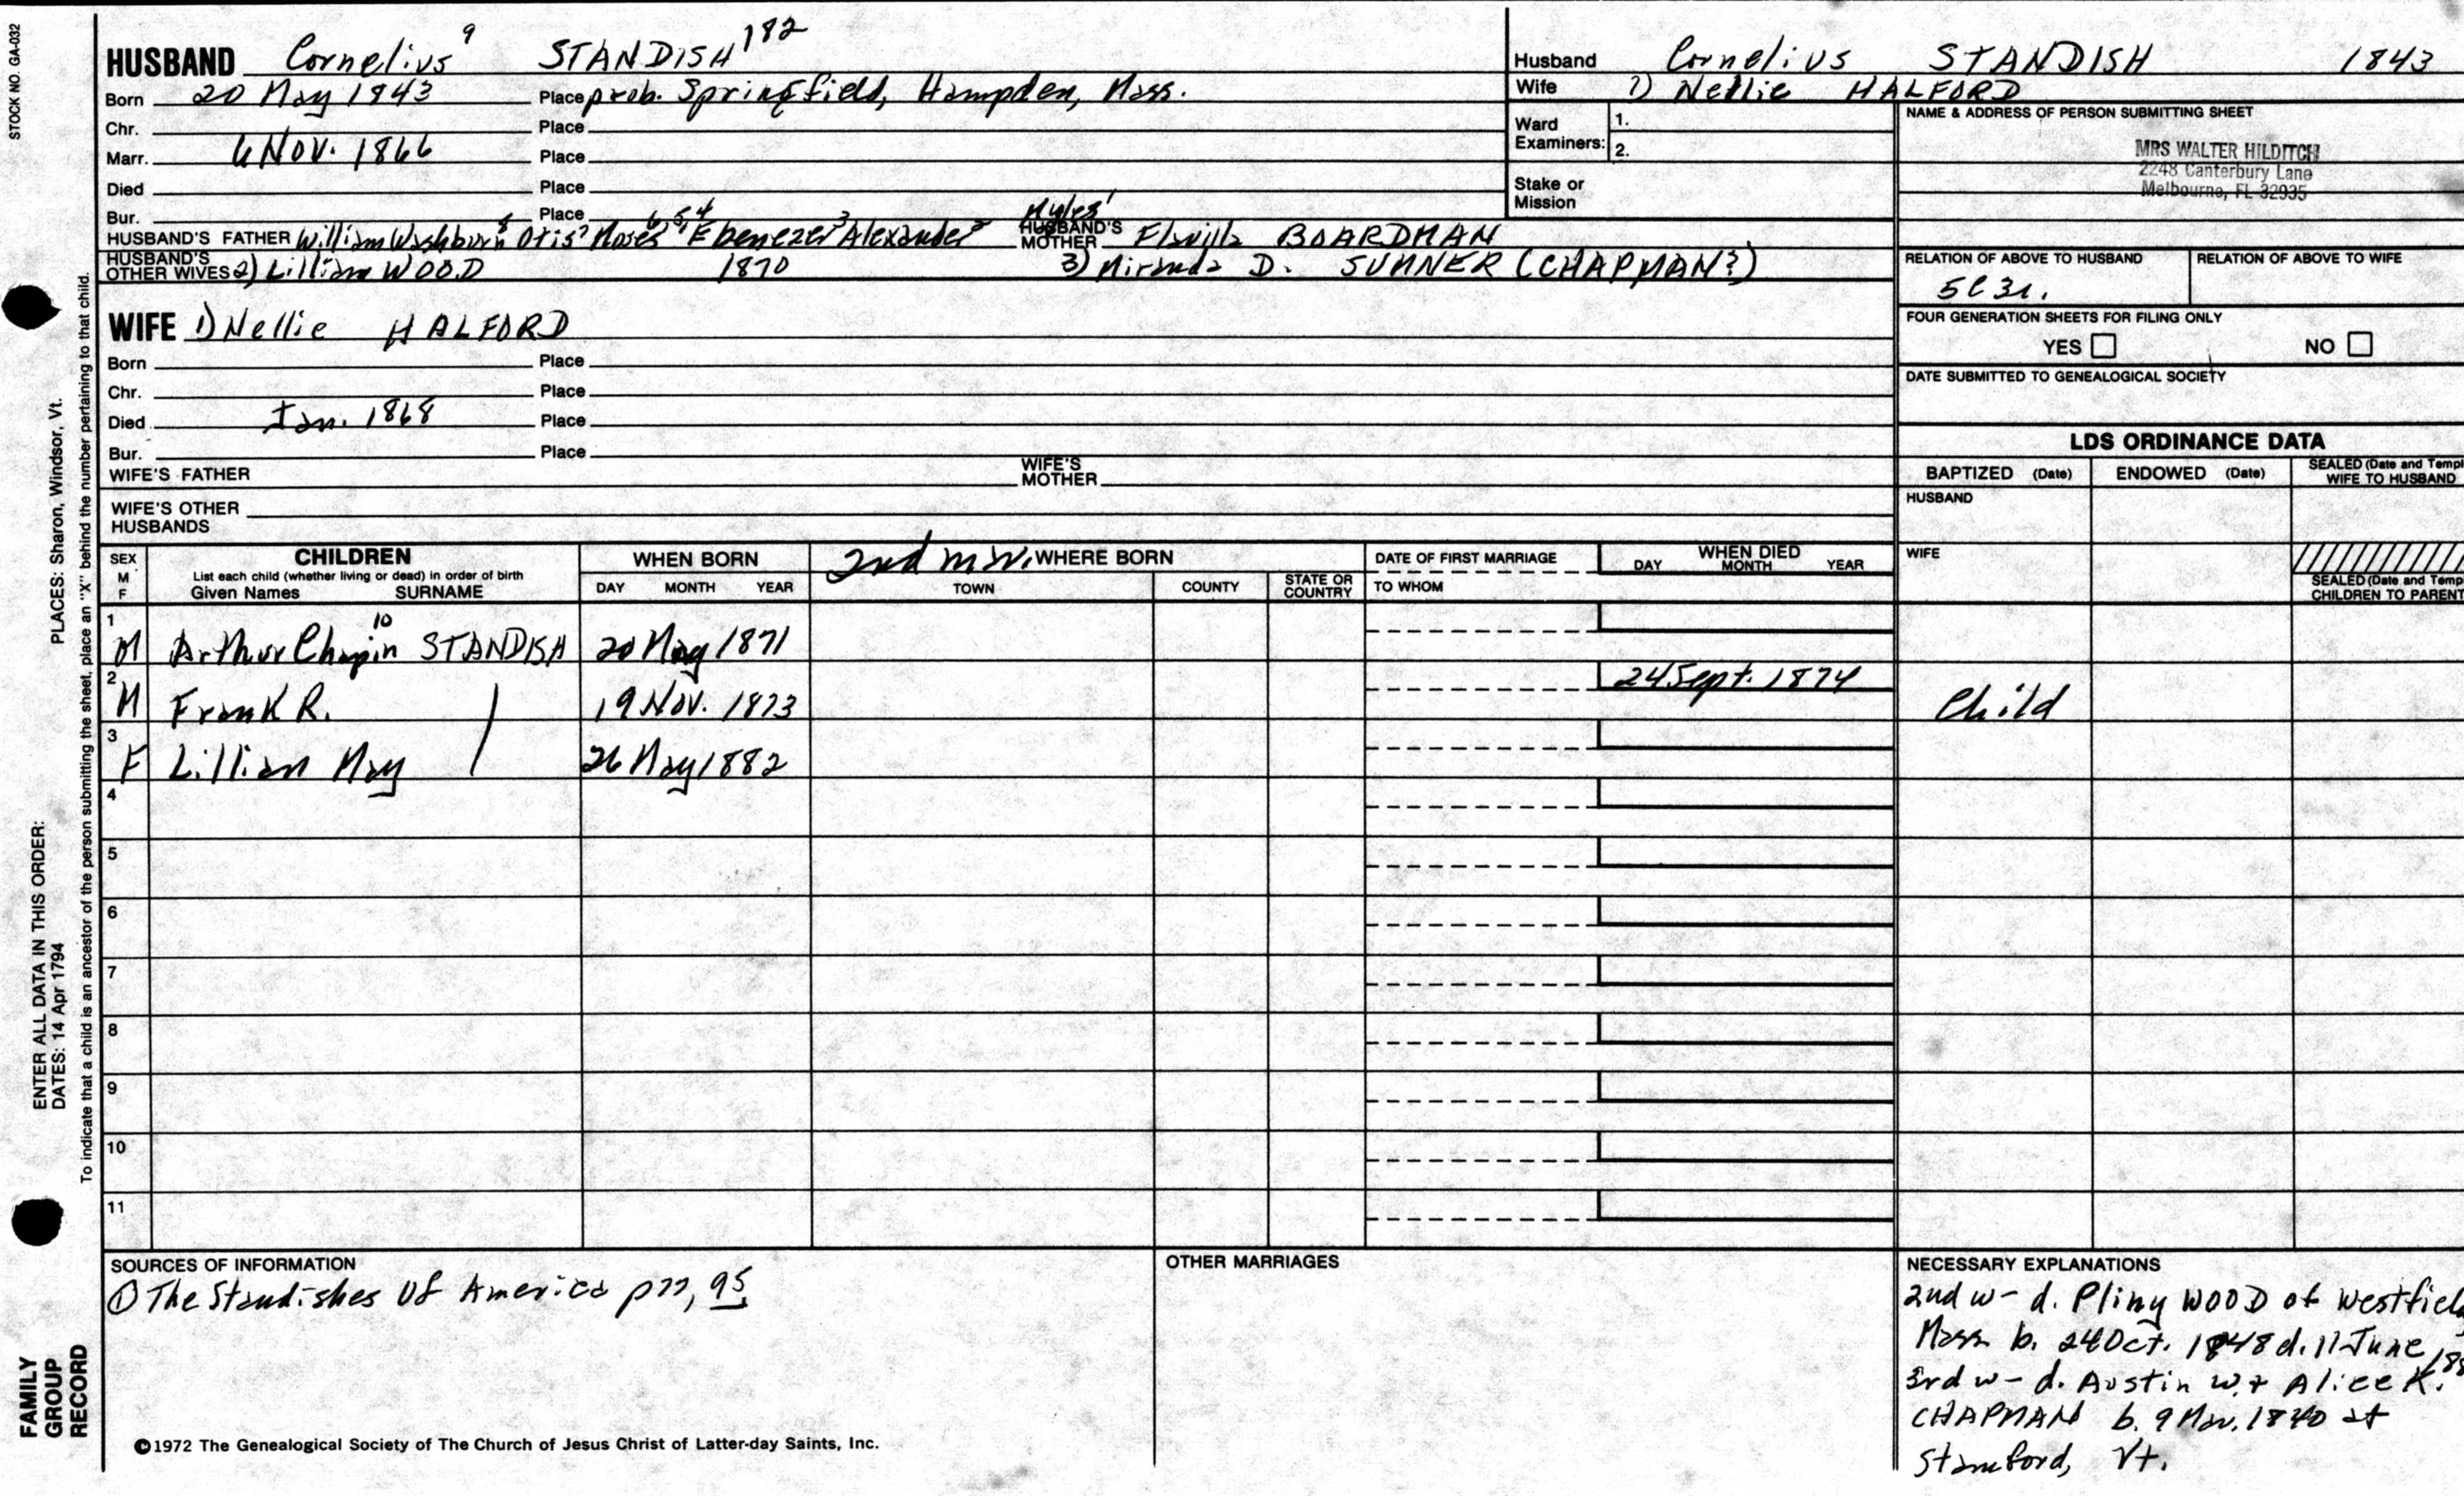 STOCK NO. GA-032
HUSBAND Cornelius⁹ STANDISH¹⁸²
Born 20 May 1843 Place prob. Springfield, Hampden, Mass.
Chr. Place
Marr. 6 Nov. 1866 Place
Died Place
Bur. Place
HUSBAND'S FATHER William Washburn⁸ Otis⁷ Moses⁶ ⁵ ⁴ Ebenezer³ Alexander² Myles¹ HUSBAND'S MOTHER Flavilla BOARDMAN
HUSBAND'S OTHER WIVES 2) Lillian WOOD 1870 3) Miranda D. SUMNER (CHAPMAN?)
WIFE 1) Nellie HALFORD
Born Place
Chr. Place
Died Jan. 1868 Place
Bur. Place
WIFE'S FATHER WIFE'S MOTHER
WIFE'S OTHER HUSBANDS
Husband Cornelius STANDISH 1843
Wife 1) Nellie HALFORD
Ward Examiners: 1.
2.
Stake or Mission
NAME & ADDRESS OF PERSON SUBMITTING SHEET
MRS WALTER HILDITCH
2248 Canterbury Lane
Melbourne, FL 32935
RELATION OF ABOVE TO HUSBAND RELATION OF ABOVE TO WIFE
5C3r.
FOUR GENERATION SHEETS FOR FILING ONLY
YES NO
DATE SUBMITTED TO GENEALOGICAL SOCIETY
LDS ORDINANCE DATA
BAPTIZED (Date) ENDOWED (Date) SEALED (Date and Templ
WIFE TO HUSBAND
HUSBAND
WIFE
SEALED (Date and Temp
CHILDREN TO PARENT
SEX M F CHILDREN WHEN BORN 2nd mw. WHERE BORN DATE OF FIRST MARRIAGE WHEN DIED
List each child (whether living or dead) in order of birth
Given Names SURNAME DAY MONTH YEAR TOWN COUNTY STATE OR COUNTRY TO WHOM DAY MONTH YEAR
1 M Arthur Chapin¹⁰ STANDISH 20 May 1871
2 M Frank R. | 19 Nov. 1873 24 Sept. 1874 Child
3 F Lillian May | 26 May 1882
4
5
6
7
8
9
10
11
SOURCES OF INFORMATION
① The Standishes Of America p77, 95
OTHER MARRIAGES
NECESSARY EXPLANATIONS
2nd w - d. Pliny WOOD of Westfiel
Mass b. 24 Oct. 1848 d. 11 June
3rd w - d. Austin W. + Alice K.
CHAPMAN b. 9 Mar. 1840 at
Stamford, Vt.
©1972 The Genealogical Society of The Church of Jesus Christ of Latter-day Saints, Inc.
FAMILY GROUP RECORD
ENTER ALL DATA IN THIS ORDER:
DATES: 14 Apr 1794
PLACES: Sharon, Windsor, Vt.
To indicate that a child is an ancestor of the person submitting the sheet, place an "X" behind the number pertaining to that child.